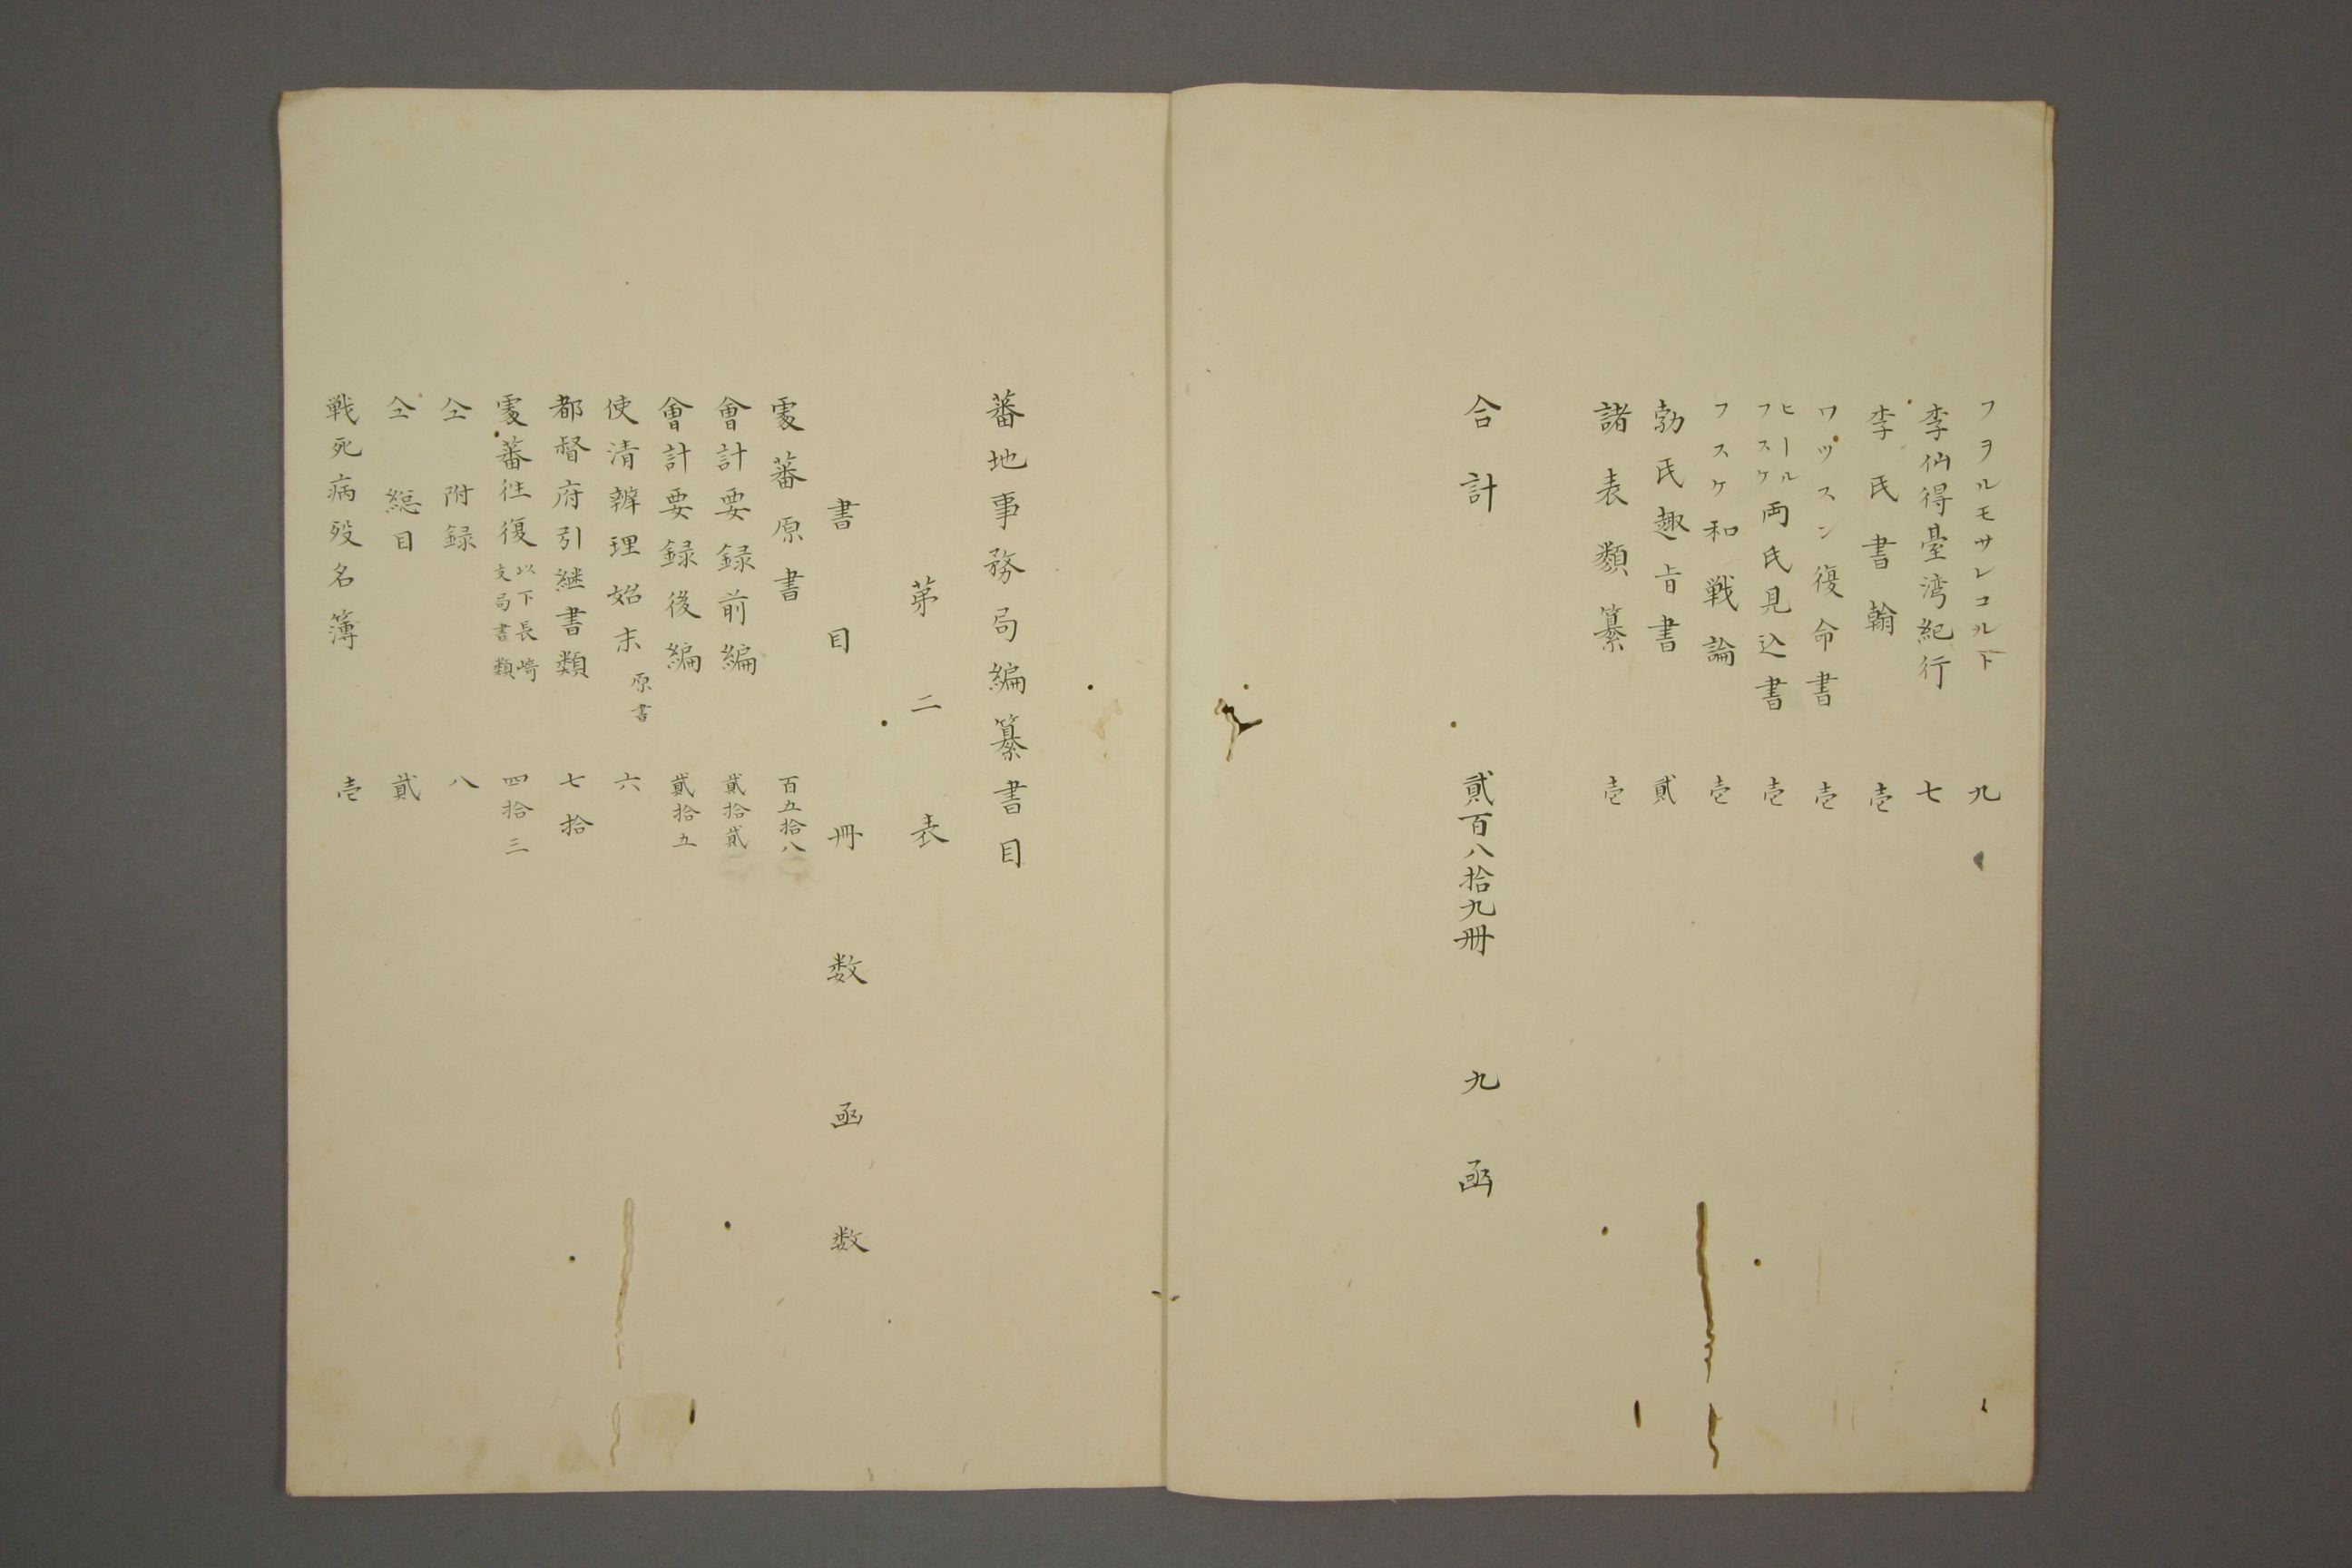 フヲルモサレコル下　九
李仙得臺湾紀行　七
李氏書翰　壱
ワッスン復命書　壱
ヒール
フスケ
両氏見込書　壱
フスケ和戦論　壱
勃氏趣旨書　貳
諸表類纂　壱
合計　貳百八拾九冊　九函
蕃地事務局編纂書目
苐二表
書目　冊数　函数
處蕃原書　百五拾八
會計要録前編　貳拾貳
會計要録後編　貳拾五
使清辨理始末　原書　六
都督府引継書類　七拾
處蕃往復
以下長崎
支局書類
四拾三
仝附録　八
仝総目　貳
戦死病歿名簿　壱